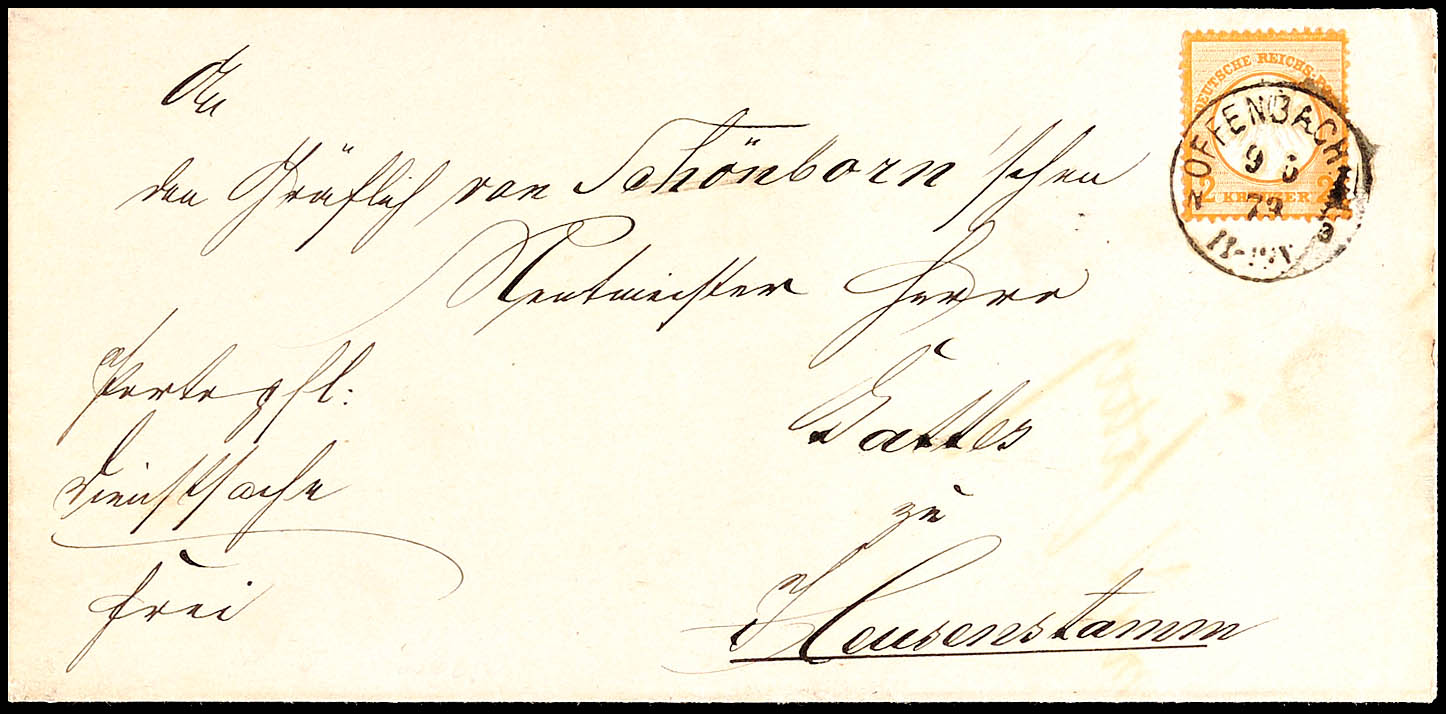 An
den Gräflich von Schönborn'schen
Rentmeister Herrn
Gattes
zu
Heusenstamm
Portopfl:
Dienstsache
frei
DEUTSCHE REICHS-POST
2 KREUZER 2
OFFENBACH
9 6
73